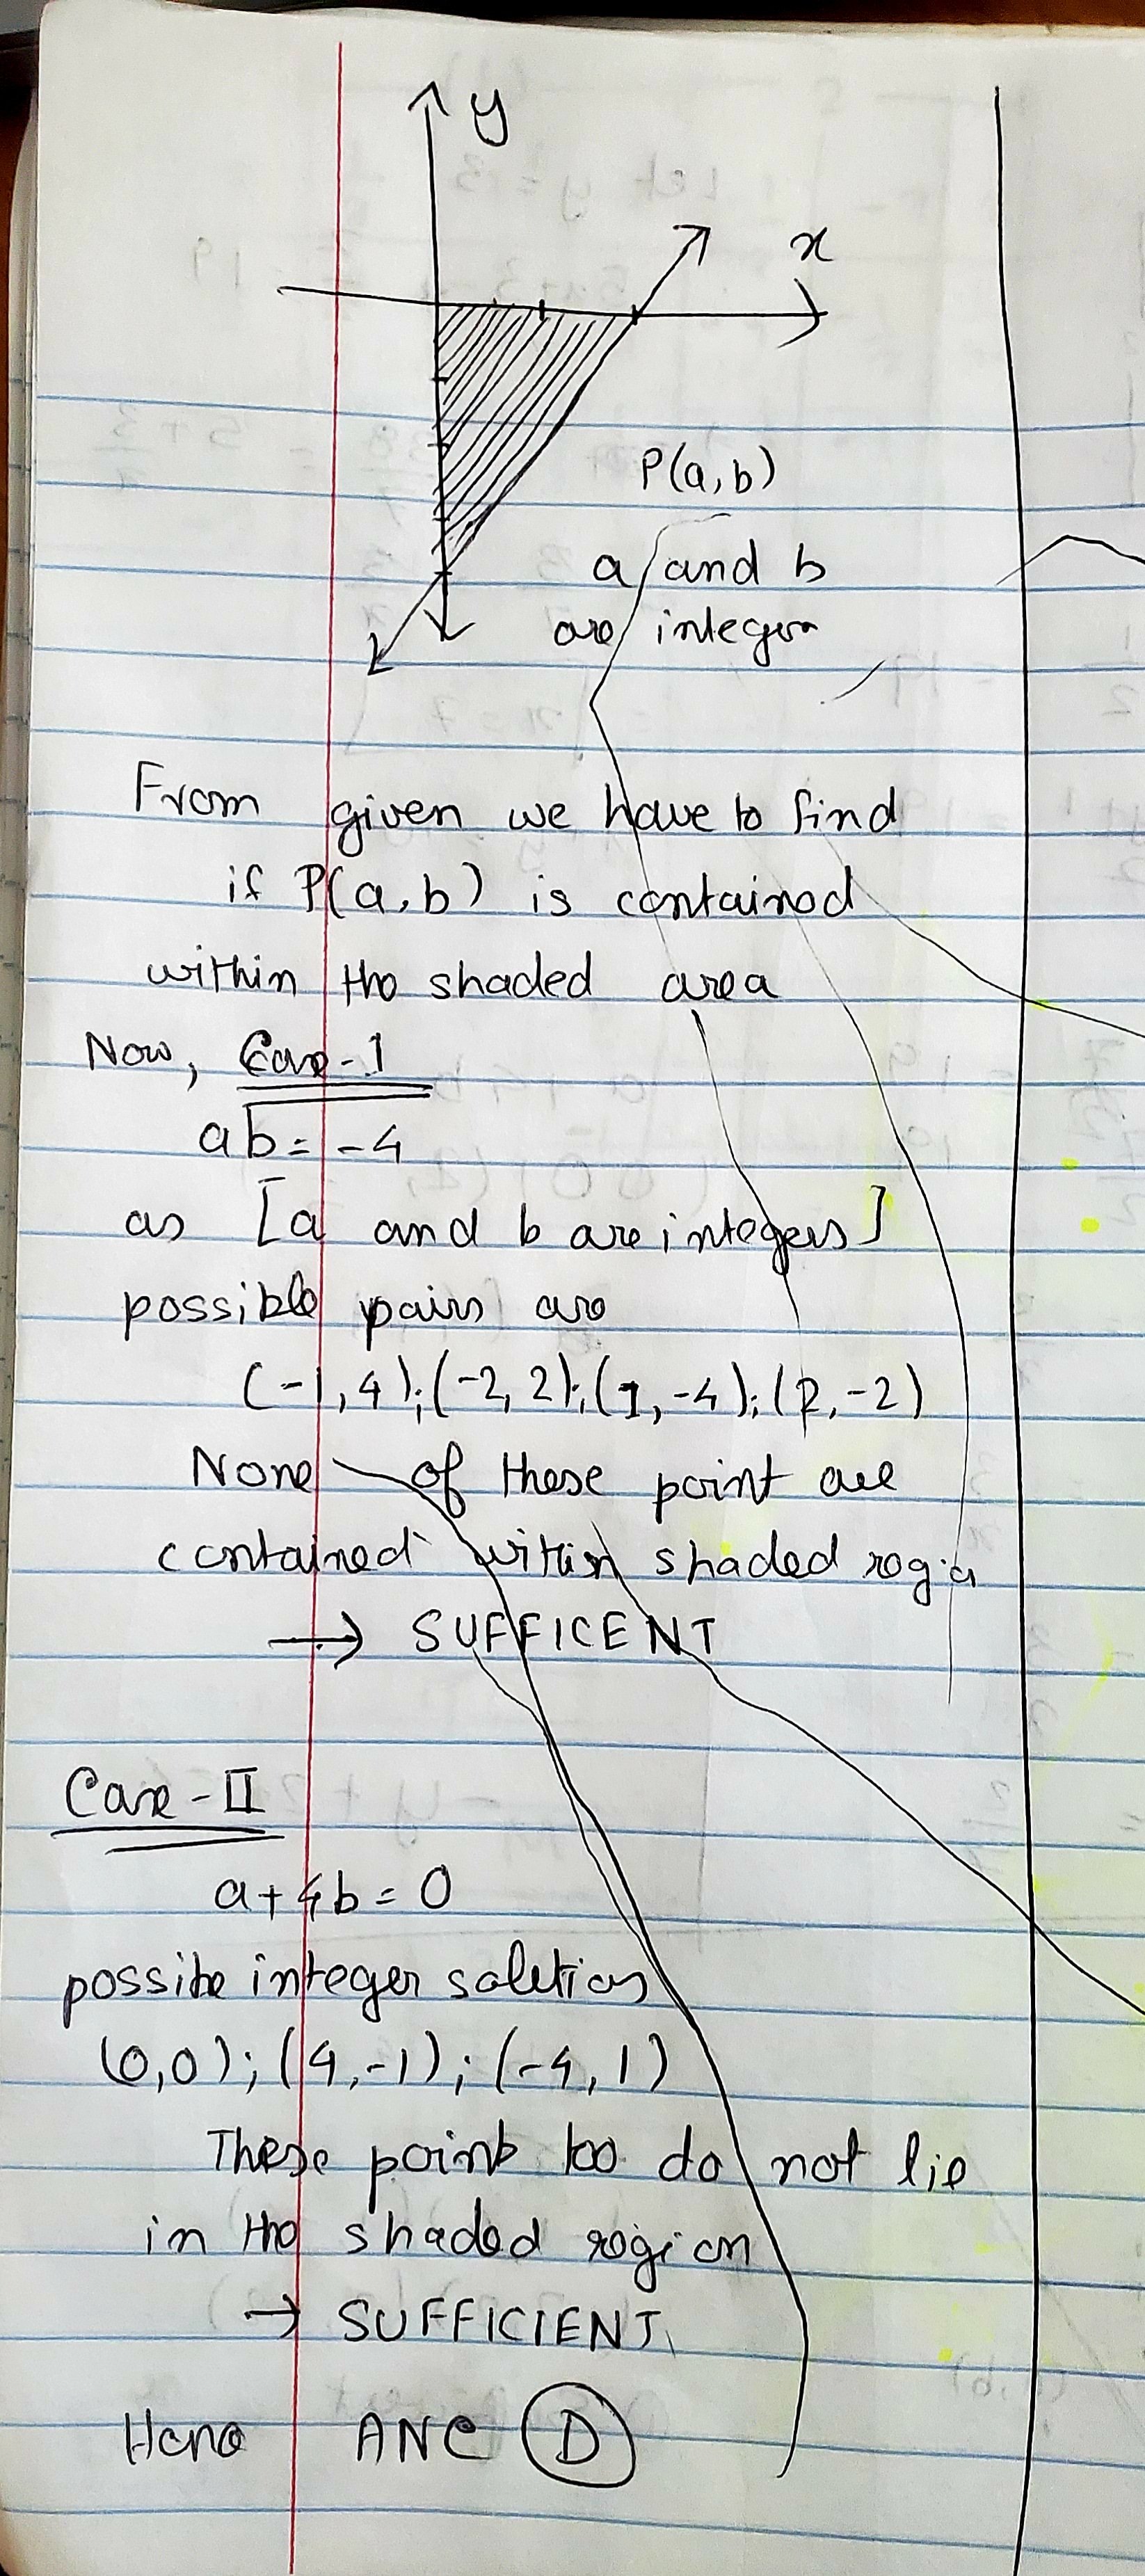 y
x
P(a,b)
a and b
are integers
From given we have to find
if P(a,b) is contained
within the shaded area
Now, Case-I
ab = -4
as [a and b are integers]
possible pairs are
(-1,4);(-2,2);(1,-4);(2,-2)
None of these point are
contained within shaded regia
→ SUFFICENT
Case-II
a+4b = 0
possibe integer solutions
(0,0);(4,-1);(-4,1)
These points too do not lie
in the shaded region
→ SUFFICIENT
Hence ANS D